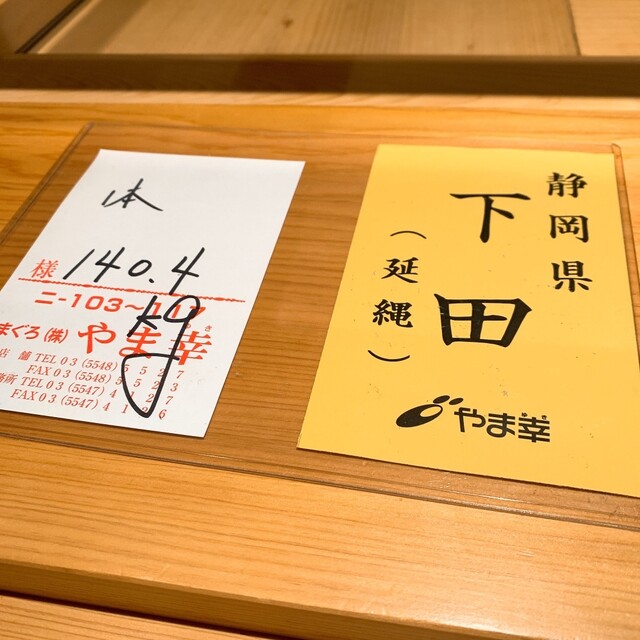 本
様 140.4
ニ-103〜117
kg
まぐろ(株) やま幸
店 舗 TEL 03 (5548) 5527
FAX 03 (5548) 5523
務所 TEL 03 (5547)
FAX 03 (5547)
静岡県
下田
(延縄)
やま幸